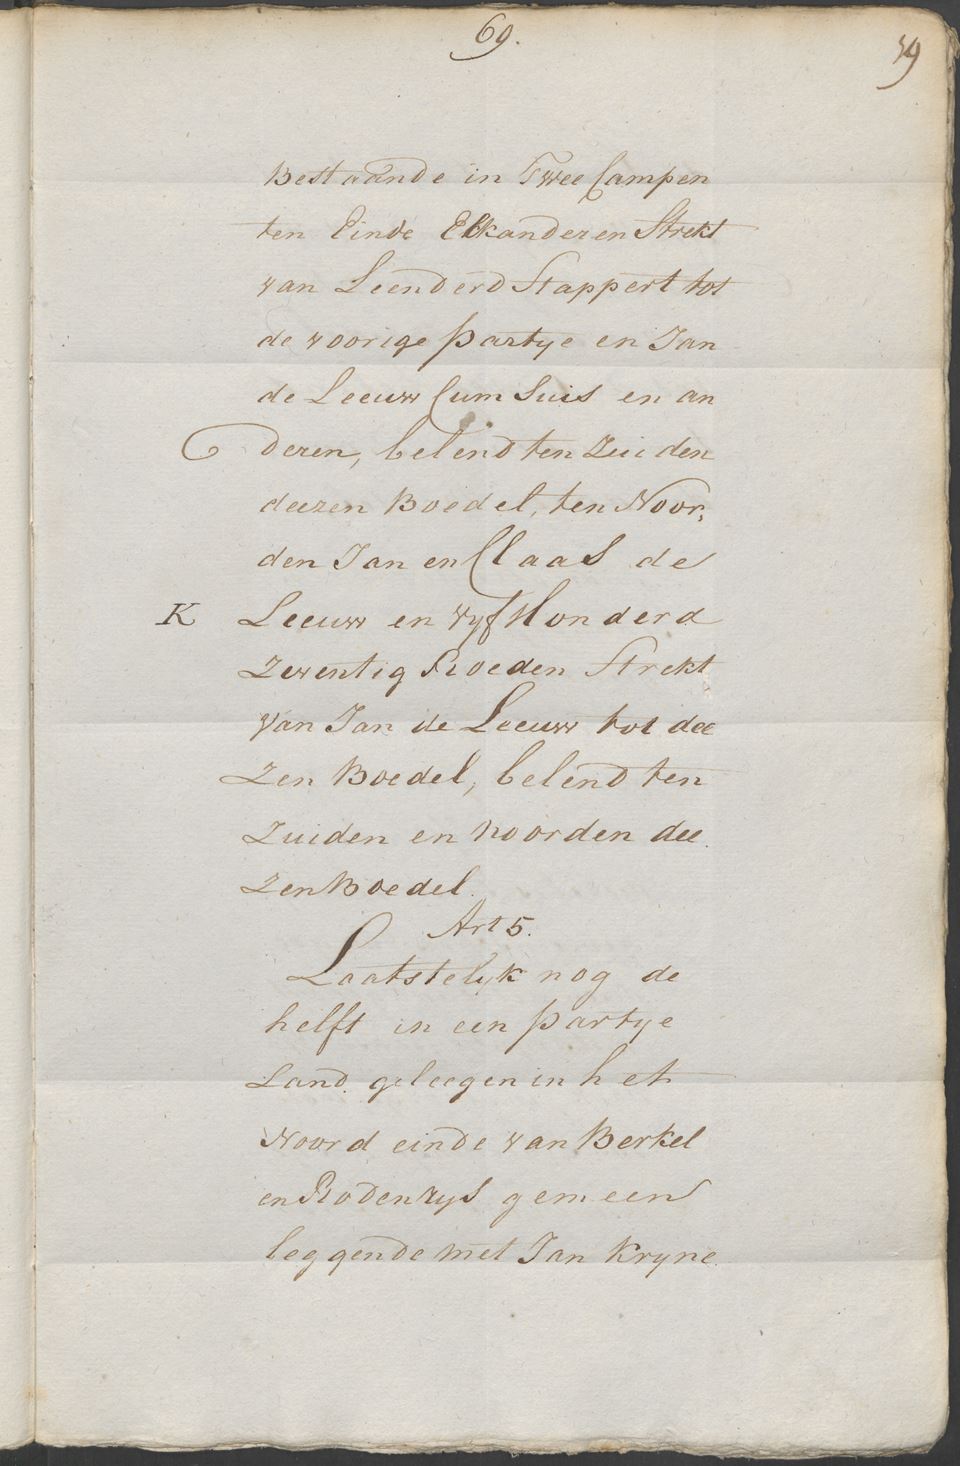 69.
39
Bestaande in Twee Campen
ten Einde Elkanderen Strekt
van Leenderd Stappert tot
de voorige partye en Jan
de Leeuw Cum Suis en an
deren, belend ten Zuiden
deezen Boedel, ten Noor,
den Jan en Claas de
K Leeuw en vyf Honderd
Zeventig Roeden Strekt
van Jan de Leeuw tot dee
Zen Boedel, belend ten
Zuiden en Noorden dee
Zen Boedel.
Art 5.
Laatstelyk nog de
helft in een partye
Land geleegen in het
Noord einde van Berkel
en Rodenrys gemeen
leggende met Jan Kryne